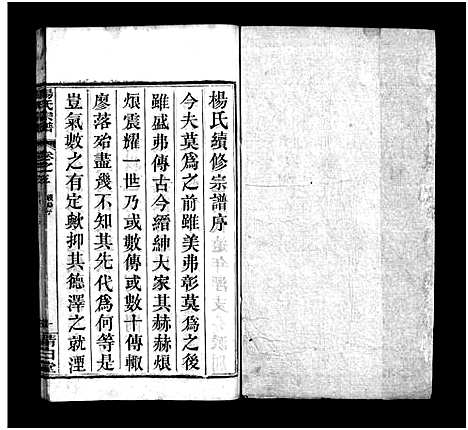 楊氏續修宗譜序
今夫莫爲之前雖美弗彰莫爲之後
雖盛弗傳古今縉紳大家其赫赫烺
烺震耀一世乃或數傳或數十傳輙
廖落殆盡幾不知其先代爲何等是
豈氣數之有定歟抑其德澤之就湮
楊氏宗譜
卷之
清白堂